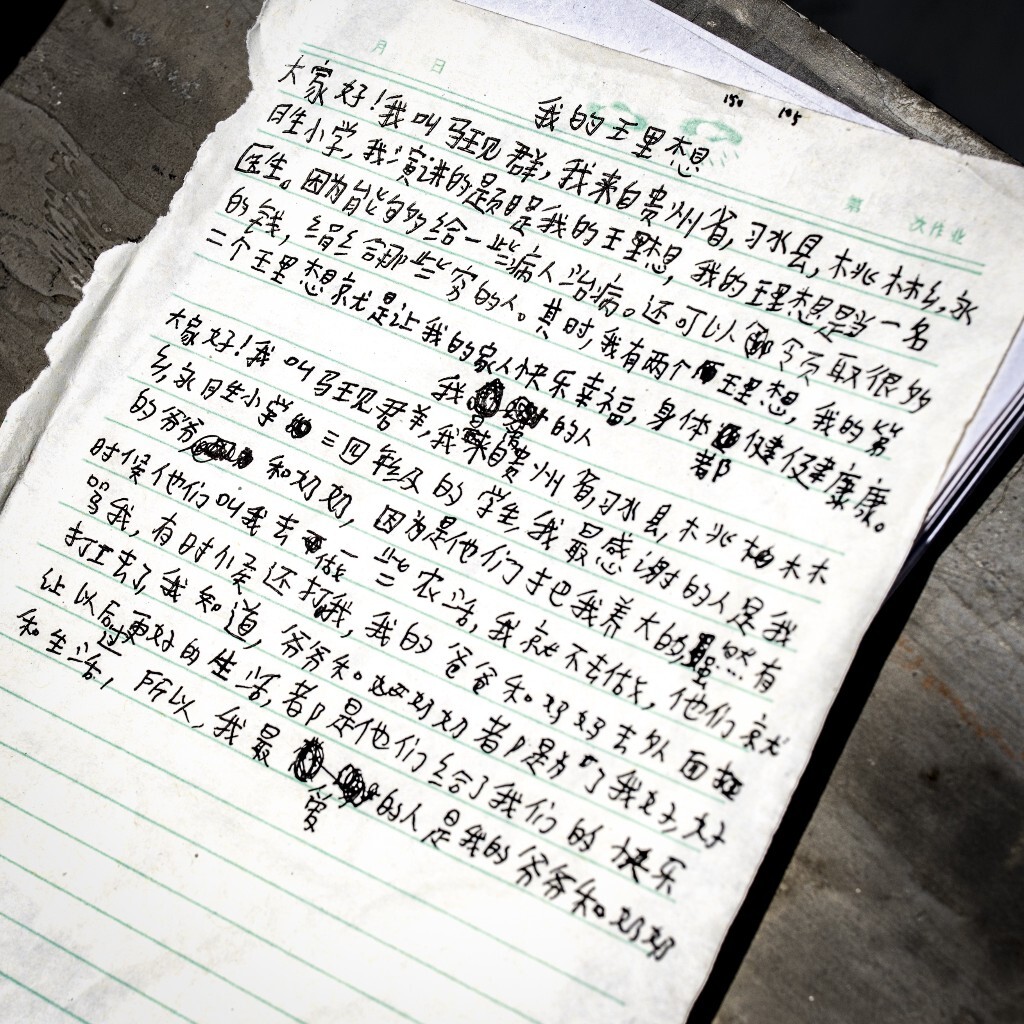 月 日
150 105
我的理想
第 次作业
大家好!我叫马现群,我来自贵州省,习水县,桃林乡,永
胜小学,我演讲的题是我的理想,我的理想是当一名
医生。因为能够给一些病人治病。还可以领取很多
的钱,绢给那些穷的人。其时,我有两个理想,我的第
二个理想就是让我的家人快乐幸福,身体都健健康康。
我最爱的人
大家好!我叫马现群,我来自贵州省,习水县,桃林
乡,永胜小学三四年级的学生,我最感谢的人是我
的爷爷和奶奶,因为是他们把我养大的虽然有
时候他们叫我去做一些农活,我就不去做,他们就
骂我,有时候还打我,我的爸爸和妈妈去外面
打工去了,我知道,爷爷和奶奶都是为了我好,好
让以后过更好的生活,都是他们给了我们的快乐
和生活,所以,我最爱的人是我的爷爷和奶奶